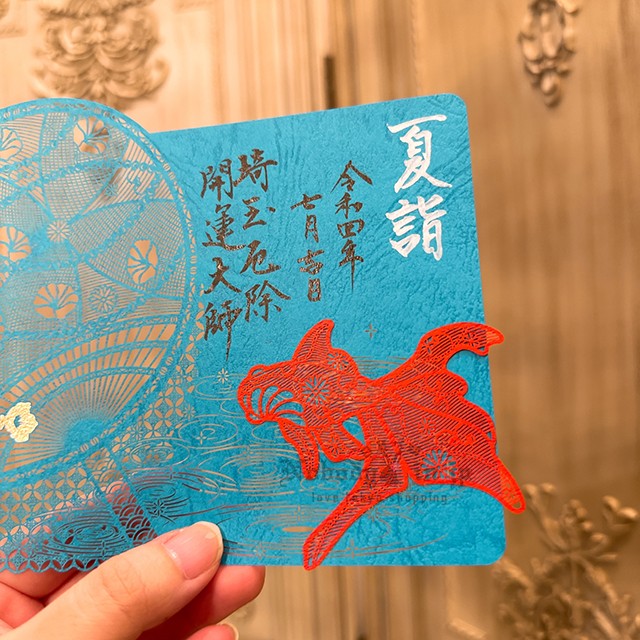 夏詣
令和四年
七月吉日
埼玉厄除
開運大師
love tokyo shopping